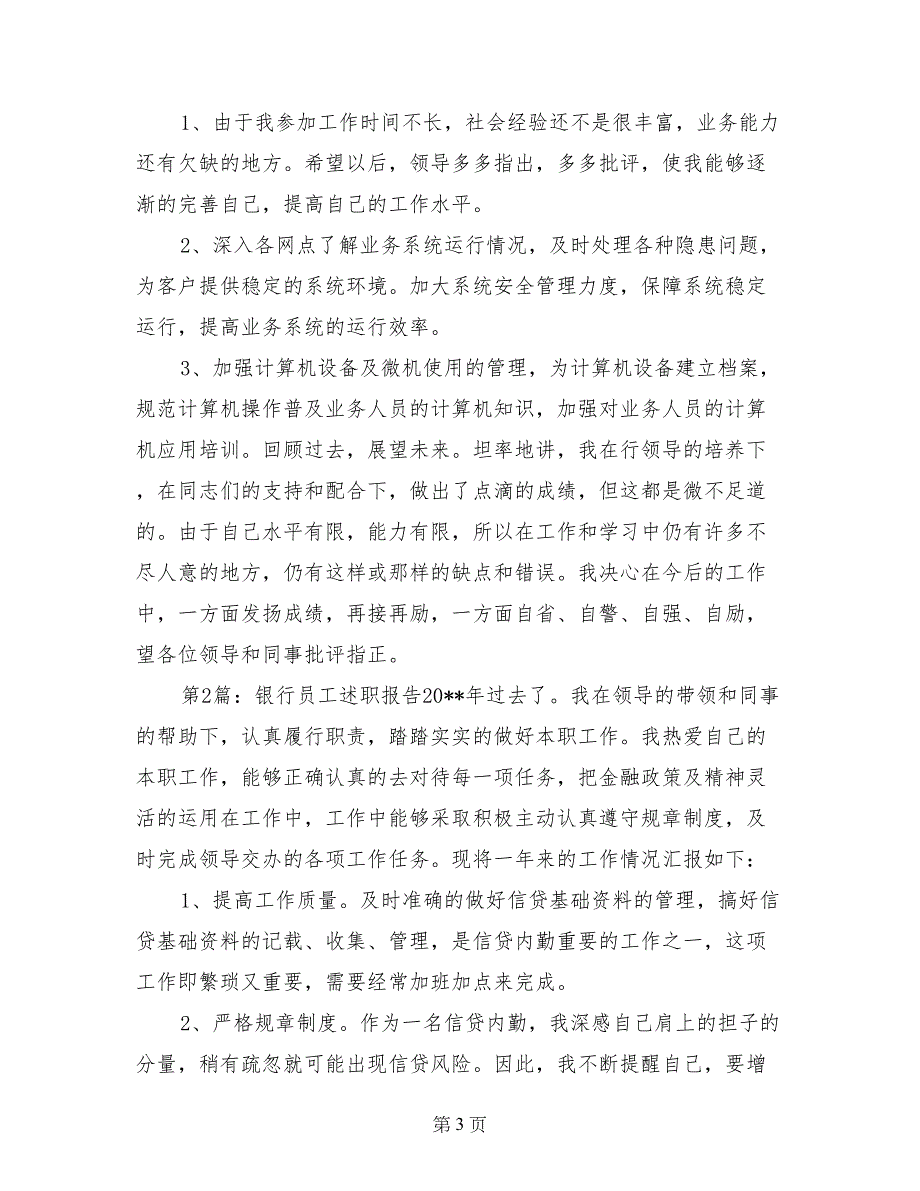 1、由于我参加工作时间不长，社会经验还不是很丰富，业务能力
还有欠缺的地方。希望以后，领导多多指出，多多批评，使我能够逐
渐的完善自己，提高自己的工作水平。
2、深入各网点了解业务系统运行情况，及时处理各种隐患问题，
为客户提供稳定的系统环境。加大系统安全管理力度，保障系统稳定
运行，提高业务系统的运行效率。
3、加强计算机设备及微机使用的管理，为计算机设备建立档案，
规范计算机操作普及业务人员的计算机知识，加强对业务人员的计算
机应用培训。回顾过去，展望未来。坦率地讲，我在行领导的培养下
，在同志们的支持和配合下，做出了点滴的成绩，但这都是微不足道
的。由于自己水平有限，能力有限，所以在工作和学习中仍有许多不
尽人意的地方，仍有这样或那样的缺点和错误。我决心在今后的工作
中，一方面发扬成绩，再接再励，一方面自省、自警、自强、自励，
望各位领导和同事批评指正。
第2篇：银行员工述职报告20**年过去了。我在领导的带领和同事
的帮助下，认真履行职责，踏踏实实的做好本职工作。我热爱自己的
本职工作，能够正确认真的去对待每一项任务，把金融政策及精神灵
活的运用在工作中，工作中能够采取积极主动认真遵守规章制度，及
时完成领导交办的各项工作任务。现将一年来的工作情况汇报如下：
1、提高工作质量。及时准确的做好信贷基础资料的管理，搞好信
贷基础资料的记载、收集、管理，是信贷内勤重要的工作之一，这项
工作即繁琐又重要，需要经常加班加点来完成。
2、严格规章制度。作为一名信贷内勤，我深感自己肩上的担子的
分量，稍有疏忽就可能出现信贷风险。因此，我不断提醒自己，要增
第 3 页